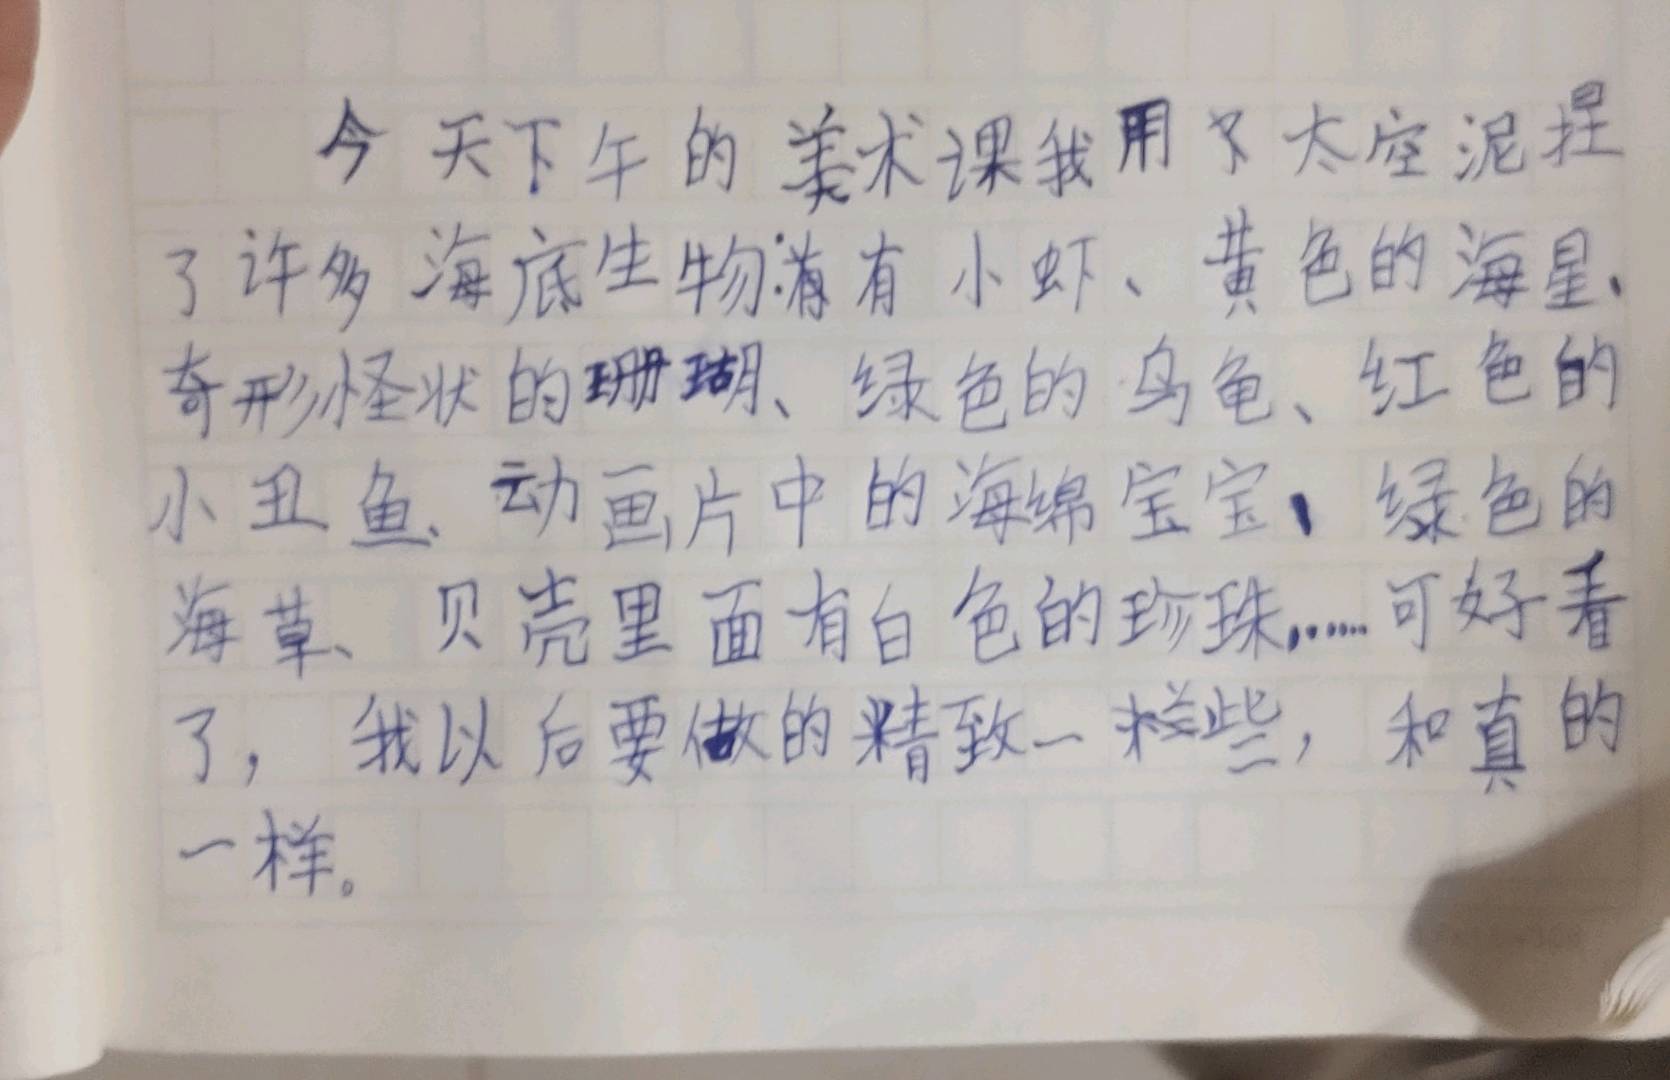 今天下午的美术课我用了太空泥捏
了许多海底生物:有小虾、黄色的海星、
奇形怪状的珊瑚、绿色的乌龟、红色的
小丑鱼、动画片中的海绵宝宝、绿色的
海草、贝壳里面有白色的珍珠,……可好看
了,我以后要做的精致一些,和真的
一样。